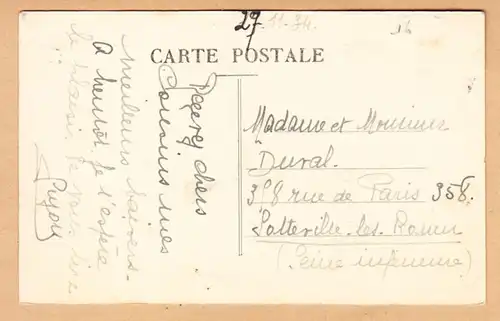 27-11-74
16
CARTE POSTALE
Recevez chers
Cousins mes
meilleurs baisers.
A bientôt je l'espère
le plaisir de vous lire
Madame et Monsieur
Duval.
358 rue de Paris 358.
Sotteville-les-Rouen
(Seine inférieure)